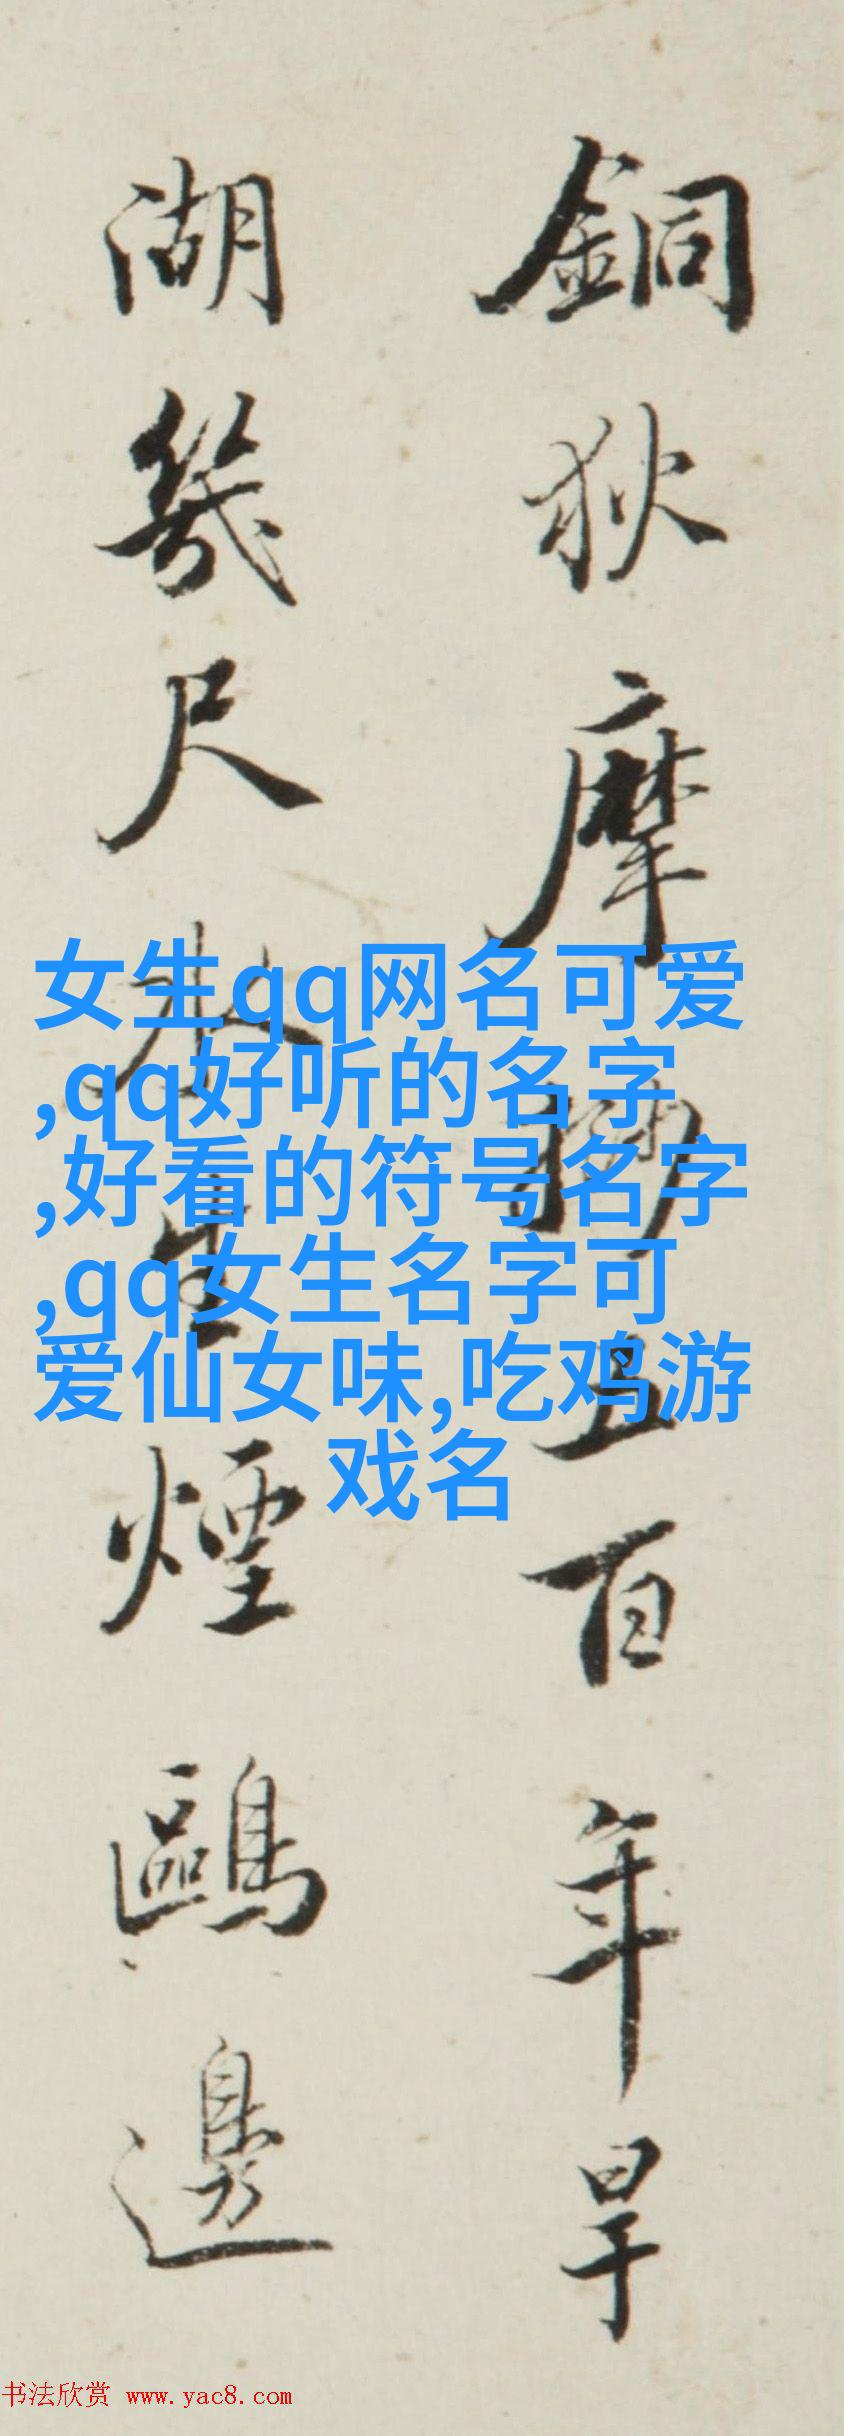 銅狄摩五百年旱
湖幾尺水生煙鷗邊
女生qq网名可爱
,qq好听的名字
,好看的符号名字
,qq女生名字可
爱仙女味,吃鸡游
戏名
书法欣赏 www.yac8.com